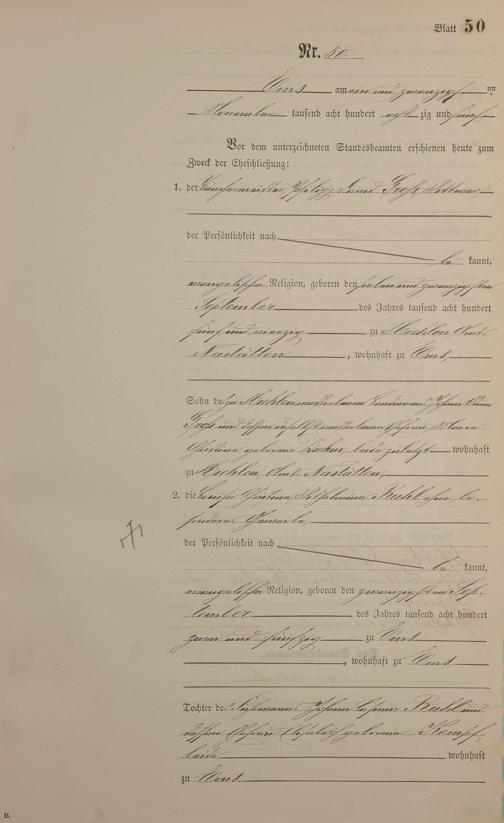 Blatt 50
Nr. 50.
Ems am ein und zwanzigsten
November tausend acht hundert acht zig und fünf
Vor dem unterzeichneten Standesbeamten erschienen heute zum
Zweck der Eheschließung:
1. der Philipp Groß,
der Persönlichkeit nach
be kannt,
evangelischer Religion, geboren den sieben und zwanzigsten
September des Jahres tausend acht hundert
fünf und vierzig zu Miehlen, Amt
Nastätten, wohnhaft zu Ems,
Sohn des zu Miehlen verstorbenen Johann
Groß und dessen daselbst verstorbenen Ehefrau Maria
Christina geborene beide zuletzt wohnhaft
zu Miehlen, Amt Nastätten,
2. die Louise Christina Wilhelmine Ruhl ohne be-
sonderes Gewerbe,
der Persönlichkeit nach
be kannt,
evangelischer Religion, geboren den zwanzigsten Sep-
tember des Jahres tausend acht hundert
zwei und fünfzig zu Ems
, wohnhaft zu Ems
Tochter des Johann Ruhl und
dessen Ehefrau Elisabeth geborene Kempf
beide wohnhaft
zu Ems.
B.